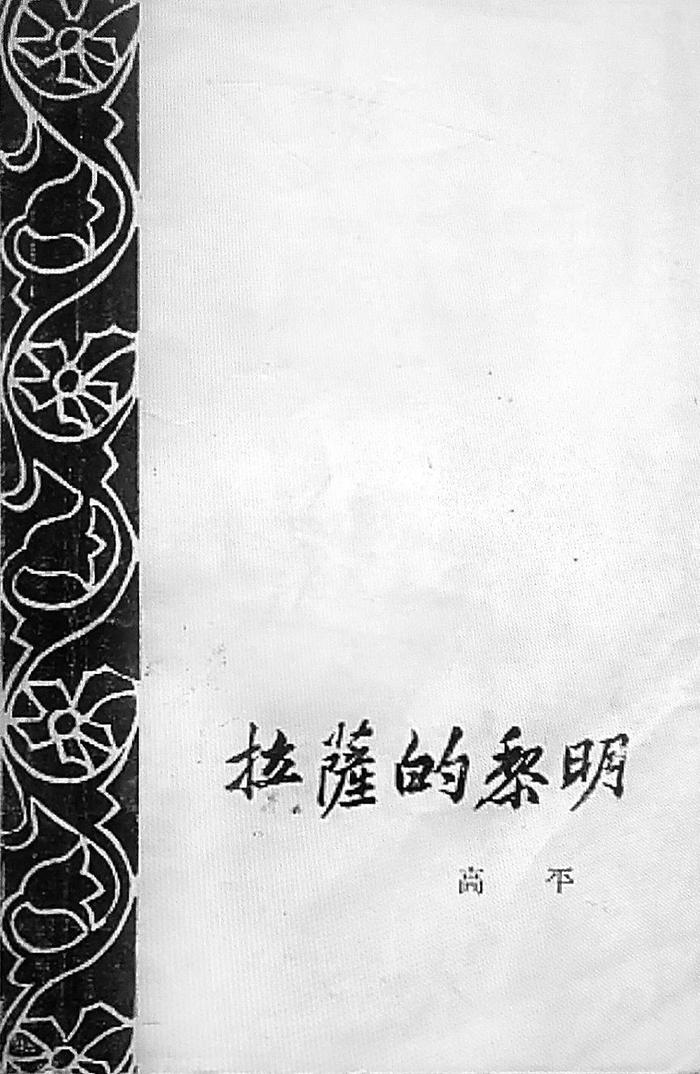 拉薩的黎明
高 平